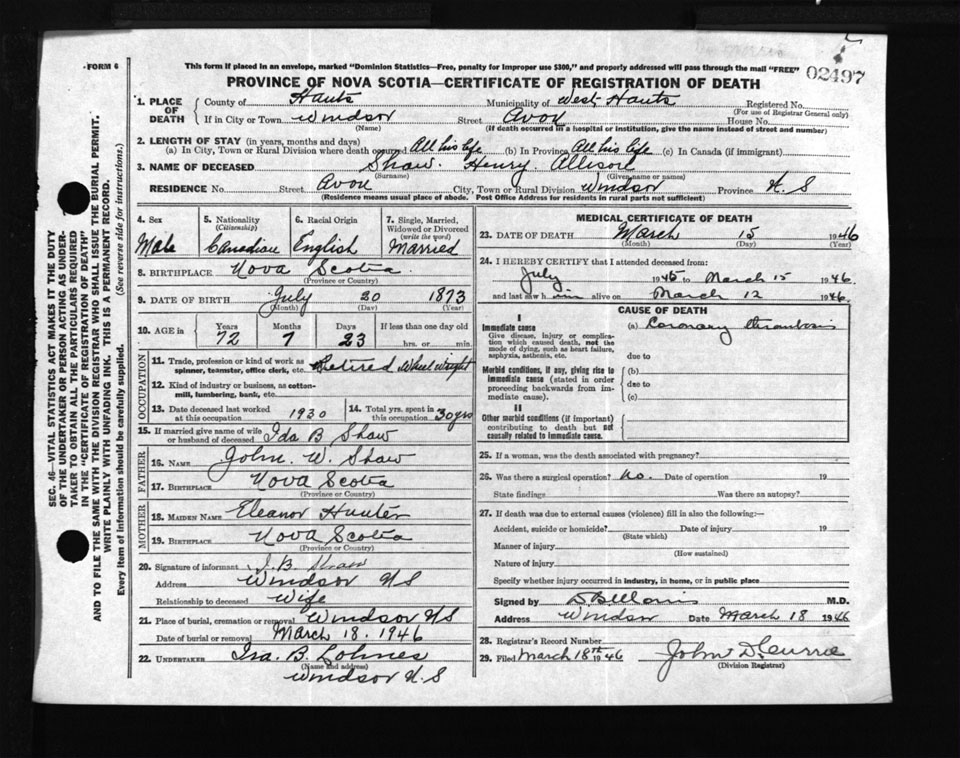 FORM 6
This form if placed in an envelope, marked "Dominion Statistics—Free, penalty for improper use $300," and properly addressed will pass through the mail "FREE"
02497
PROVINCE OF NOVA SCOTIA—CERTIFICATE OF REGISTRATION OF DEATH
1. PLACE OF DEATH County of Hants Municipality of West Hants Registered No.
(For use of Registrar General only)
If in City or Town Windsor Street Avon House No.
(Name) (If death occurred in a hospital or institution, give the name instead of street and number)
2. LENGTH OF STAY (in years, months and days)
(a) In City, Town or Rural Division where death occurred All his life (b) In Province All his life (c) In Canada (if immigrant)
3. NAME OF DECEASED Shaw. Henry. Allison
(Surname) (Given name or names)
RESIDENCE No. Street Avon City, Town or Rural Division Windsor Province N.S
(Residence means usual place of abode. Post Office Address for residents in rural parts not sufficient)
SEC. 46—VITAL STATISTICS ACT MAKES IT THE DUTY
OF THE UNDERTAKER OR PERSON ACTING AS UNDER-
TAKER TO OBTAIN ALL THE PARTICULARS REQUIRED
IN THE "CERTIFICATE OF REGISTRATION OF DEATH"
AND TO FILE THE SAME WITH THE DIVISION REGISTRAR WHO SHALL ISSUE THE BURIAL PERMIT.
WRITE PLAINLY WITH UNFADING INK. THIS IS A PERMANENT RECORD.
Every item of information should be carefully supplied. (See reverse side for instructions.)
4. Sex
Male
5. Nationality
(Citizenship)
Canadian
6. Racial Origin
English
7. Single, Married,
Widowed or Divorced
(write the word)
Married
8. BIRTHPLACE Nova Scotia
(Province or Country)
9. DATE OF BIRTH July 20 1873
(Month) (Day) (Year)
10. AGE in Years Months Days If less than one day old
72 7 23 hrs. or min.
OCCUPATION
11. Trade, profession or kind of work as
spinner, teamster, office clerk, etc. Retired Wheelwright
12. Kind of industry or business, as cotton-
mill, lumbering, bank, etc.
13. Date deceased last worked
at this occupation 1930
14. Total yrs. spent in
this occupation 30 yrs
15. If married give name of wife
or husband of deceased Ida B Shaw
FATHER
16. NAME John. W. Shaw
17. BIRTHPLACE Nova Scotia
(Province or Country)
MOTHER
18. MAIDEN NAME Eleanor Hunter
19. BIRTHPLACE Nova Scotia
(Province or Country)
20. Signature of informant I. B. Shaw
Address Windsor NS
Relationship to deceased Wife
21. Place of burial, cremation or removal Windsor NS
Date of burial or removal March 18. 1946
22. UNDERTAKER Ira. B. Lohnes
(Name and address)
Windsor N.S
MEDICAL CERTIFICATE OF DEATH
23. DATE OF DEATH March 15 1946
(Month) (Day) (Year)
24. I HEREBY CERTIFY that I attended deceased from:
July 1945 to March 15 1946.
and last saw him alive on March 12 1946.
CAUSE OF DEATH
I
Immediate cause
Give disease, injury or complica-
tion which caused death, not the
mode of dying, such as heart failure,
asphyxia, asthenia, etc.
(a) Coronary thrombosis
due to
Morbid conditions, if any, giving rise to
immediate cause (stated in order
proceeding backwards from im-
mediate cause).
(b)
due to
(c)
II
Other morbid conditions (if important)
contributing to death but not
causally related to immediate cause.
25. If a woman, was the death associated with pregnancy?
26. Was there a surgical operation? No. Date of operation 19
State findings Was there an autopsy?
27. If death was due to external causes (violence) fill in also the following:—
Accident, suicide or homicide? Date of injury 19
(State which)
Manner of injury
(How sustained)
Nature of injury
Specify whether injury occurred in industry, in home, or in public place
Signed by M.D.
Address Windsor Date March 18 1946
28. Registrar's Record Number
29. Filed March 18th 1946 John D. Currie
(Division Registrar)